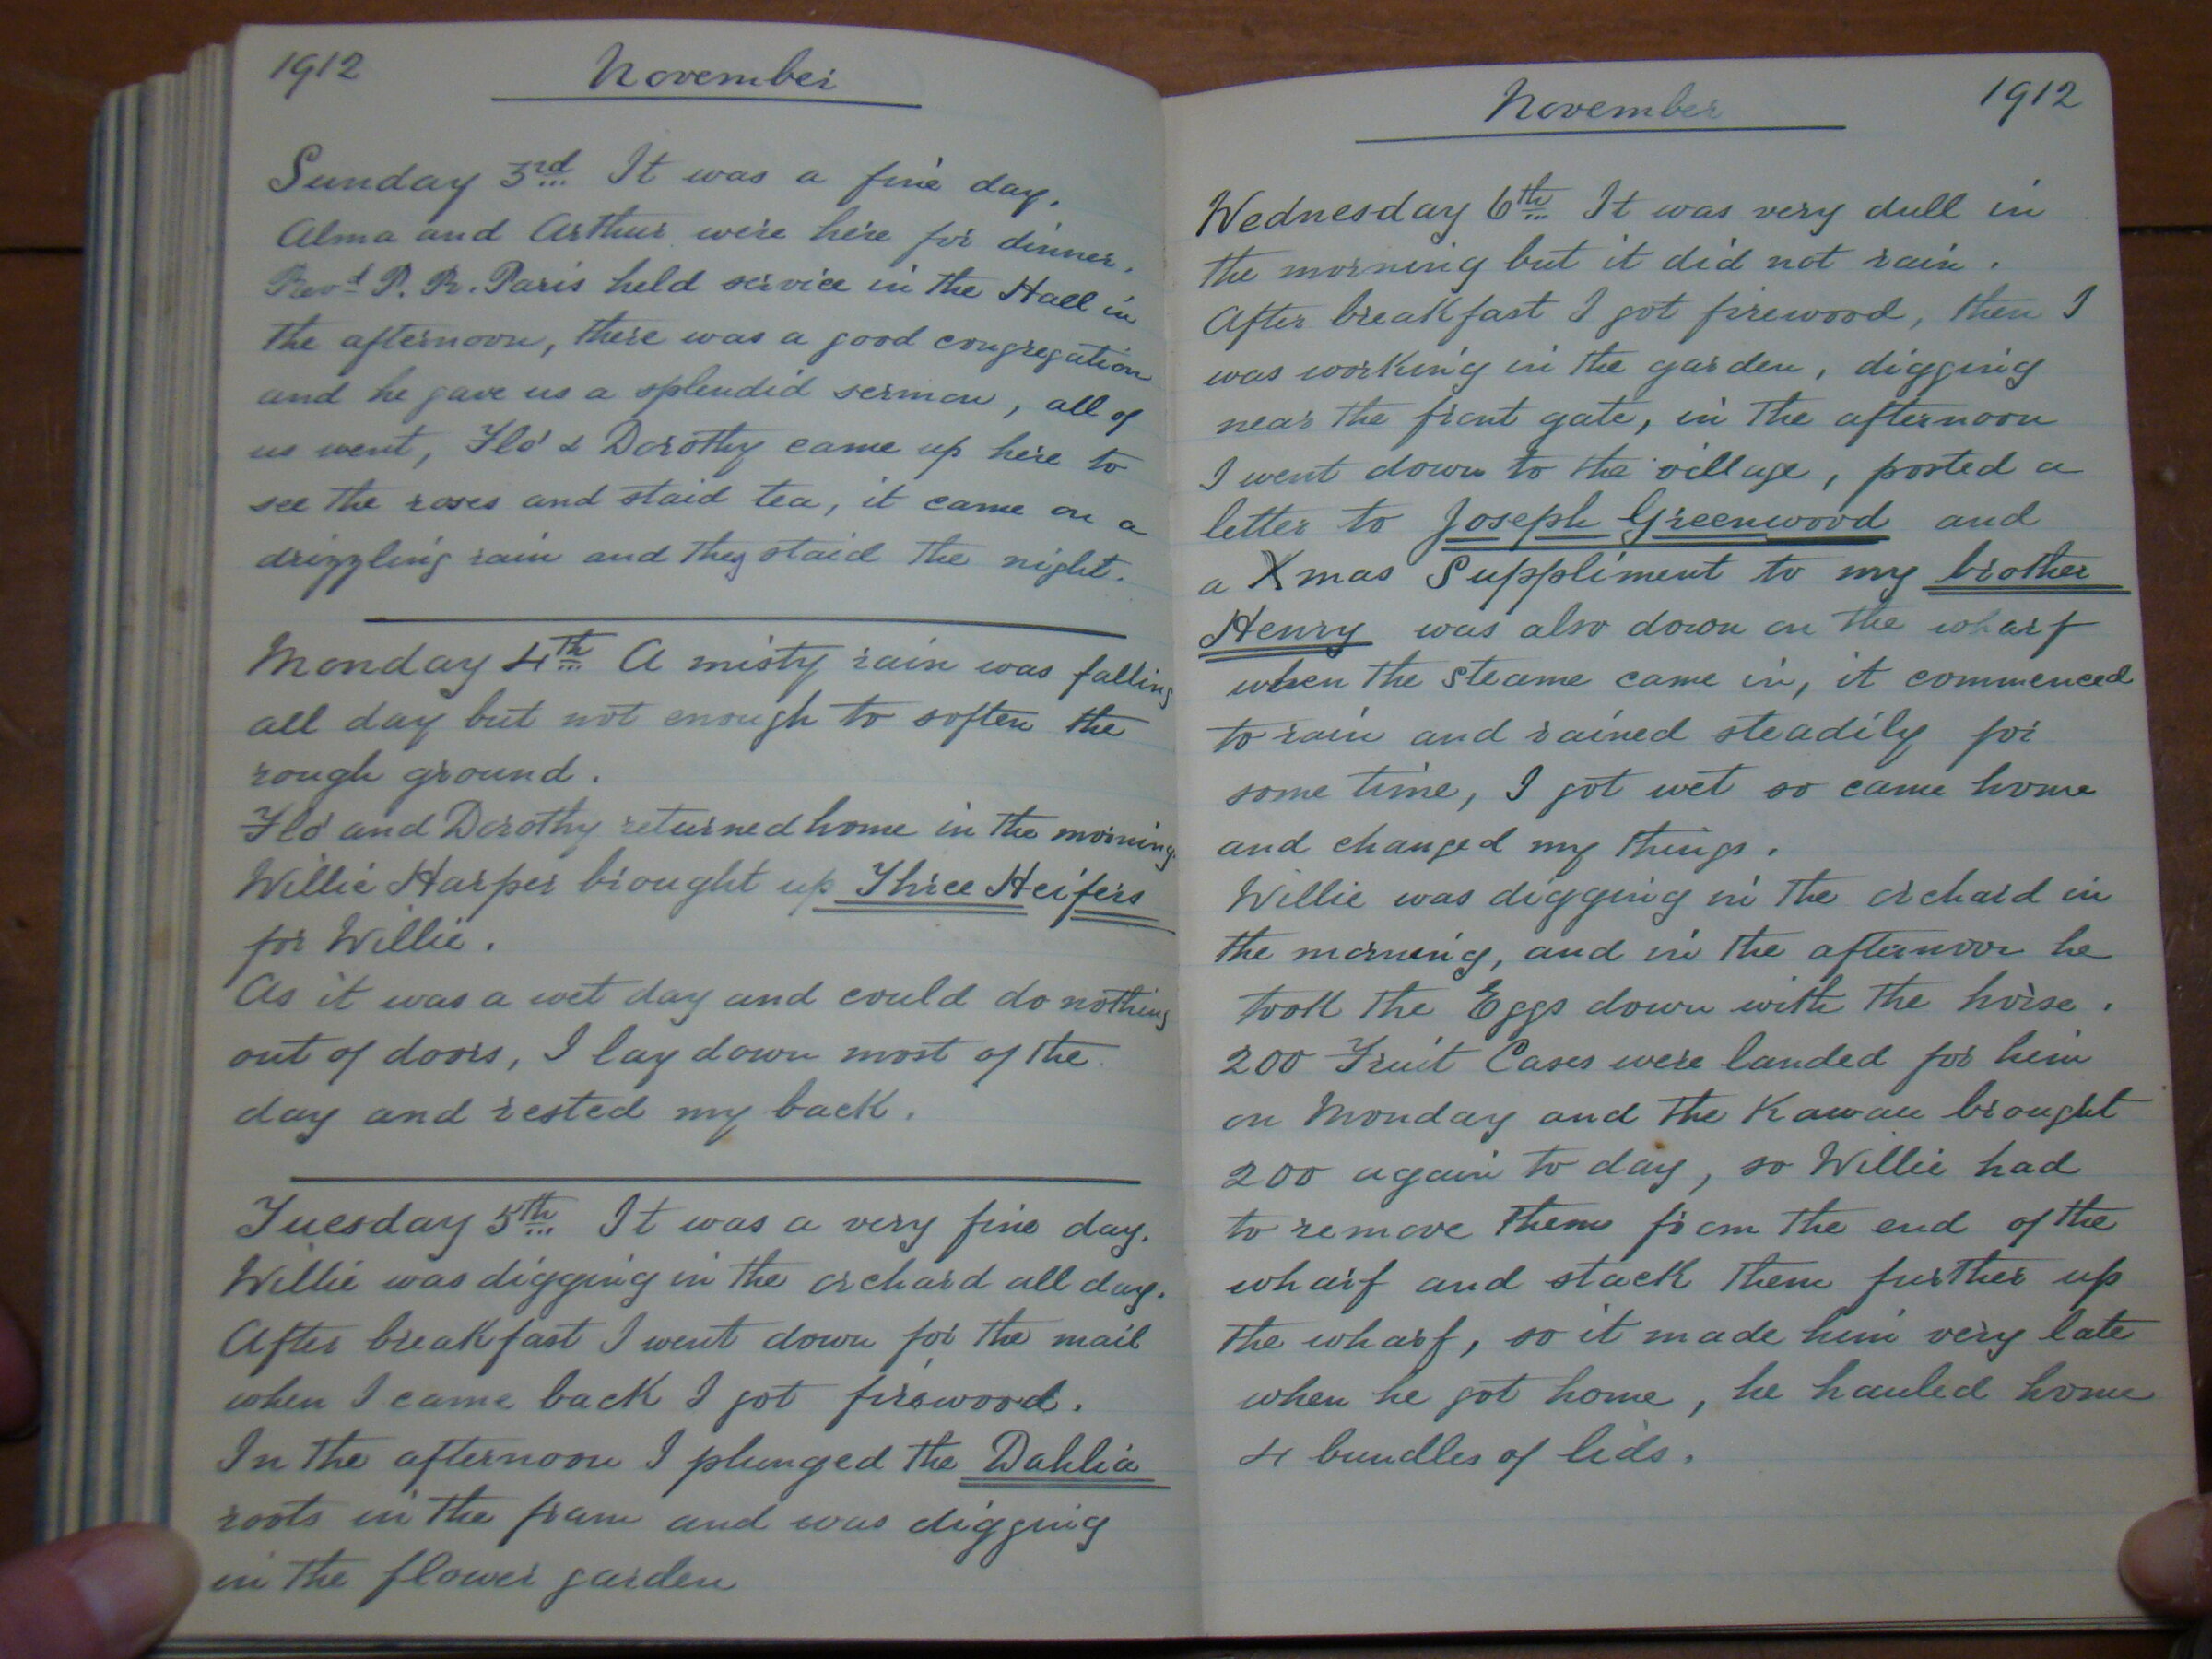 1912 November
Sunday 3rd It was a fine day.
Alma and Arthur were here for dinner.
Revd P. R. Paris held service in the Hall in
the afternoon, there was a good congregation
and he gave us a splendid sermon, all of
us went, Flo' & Dorothy came up here to
see the roses and staid tea, it came on a
drizzling rain and they staid the night.
Monday 4th A misty rain was falling
all day but not enough to soften the
rough ground.
Flo' and Dorothy returned home in the morning.
Willie Harper brought up Three Heifers
for Willie.
As it was a wet day and could do nothing
out of doors, I lay down most of the
day and rested my back.
Tuesday 5th It was a very fine day.
Willie was digging in the orchard all day.
After breakfast I went down for the mail
when I came back I got firewood.
In the afternoon I plunged the Dahlia
roots in the fram and was digging
in the flower garden
November 1912
Wednesday 6th It was very dull in
the morning but it did not rain.
After breakfast I got firewood, then I
was working in the garden, digging
near the front gate, in the afternoon
I went down to the village, posted a
letter to Joseph Greenwood and
a Xmas Suppliment to my brother
Henry was also down on the wharf
when the steame came in, it commenced
to rain and rained steadily for
some time, I got wet so came home
and changed my things.
Willie was digging in the orchard in
the morning, and in the afternoon he
took the Eggs down with the horse.
200 Fruit Cases were landed for him
on Monday and the Kawau brought
200 again to day, so Willie had
to remove them from the end of the
wharf and stack them further up
the wharf, so it made him very late
when he got home, he hauled home
4 bundles of lids.